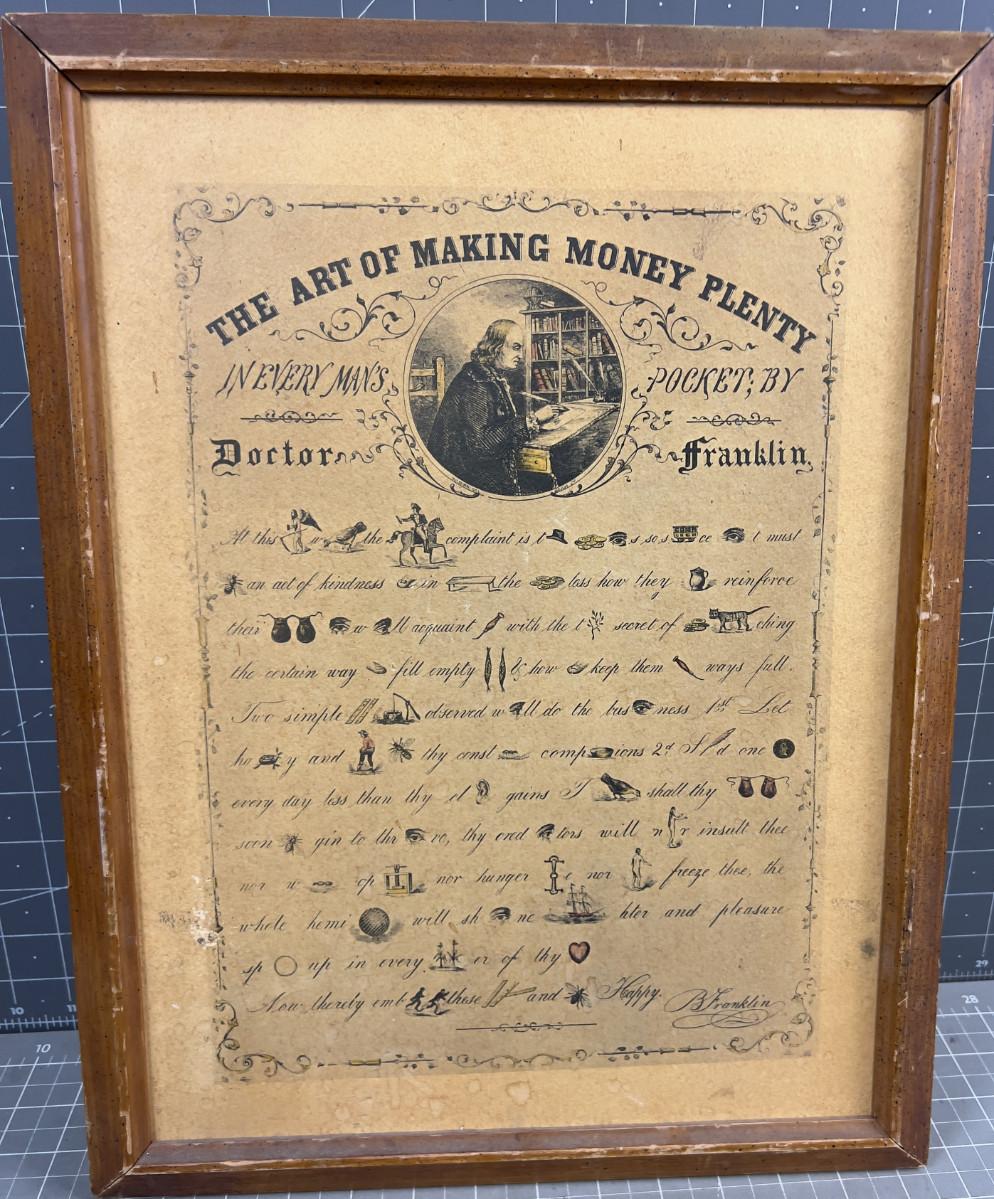 THE ART OF MAKING MONEY PLENTY
IN EVERY MAN'S POCKET; BY
Doctor Franklin,
At this w the complaint is t s so s ce t must
an act of kindness in the less how they reinforce
their w ll acquaint with the t secret of ching
the certain way fill empty & how keep them ways full.
Two simple observed w ll do the bus ness 1st Let
ho y and thy const comp ions 2d S d one
every day less than thy cl gains T shall thy
soon gin to thr ve, thy cred tors will n r insult thee
nor w op nor hunger e nor freeze thee, the
whole hemi will sh ne hter and pleasure
sp up in every er of thy
Now thereby emb these and Happy. B Franklin
10
10
11
29
28